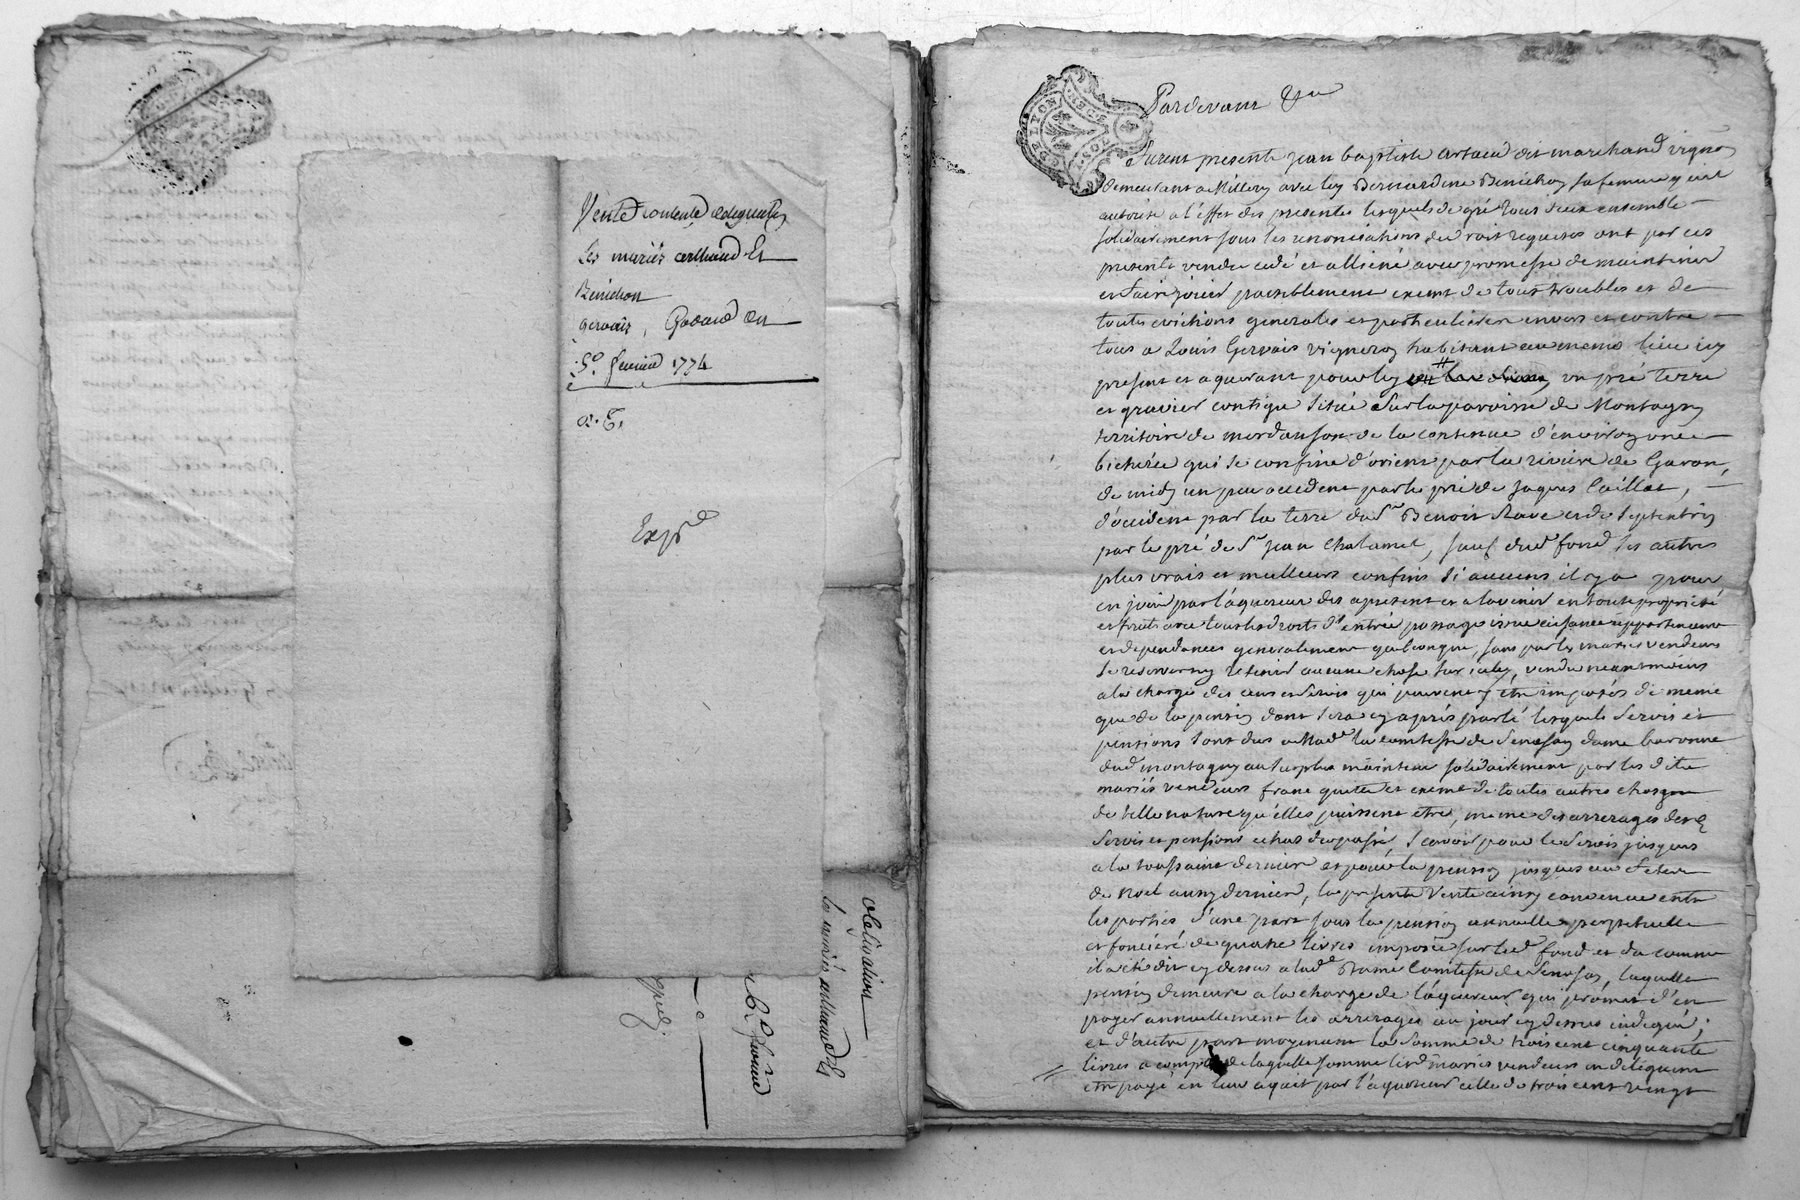 Vente contente
Les mariés arthaud Et
Benichon
gervais,
5e. fevrier 1774
Exp.d
obligation
les mariés arthaud Et
DE LYON
GE
SOLS
Pardevant &a
Furent presents jean baptiste artaud dit marchand vigñ
demeurant a Millery avec luy Bernardine Benichon sa femme qu'il
autorise a l'effet des presentes lesquels de gré tous deux ensemble
solidairement sous les renonciations de droit requises ont par ces
presentes vendu cedé et alliené avec promesse de maintenir
et faire jouir paisiblement exemt de tous troubles et de
toutes evictions generales et particulieres envers et contre
tous a Louis Gervais vigneron habitant au meme lieu icy
present et aquerant pour luy un pré terre
et gravier contigu situé sur la paroisse de Montagny
territoire de mordanson de la contenue d'environ une
bicherée qui se confine d'orient par la riviere de Garon,
de midy un peu occident par le pré de jaques Caillot,
d'occident par la terre du Sr. Benoit et de septentrion
par le pré de Sr jean Chalamel, sauf dud. fond ses autres
plus vrais et meilleurs confins si aucuns il y a pour
en jouir par l'aquereur des apresent et a l'avenir en toute proprieté
et fruits avec tous les droits d'entrée passage issue aisance appartenance
et dependances generalement quelconque, sans par les mariés vendeurs
se reserver ny retenir aucune chose sur icelux, vendu neantmoins
a la charge des cens et servis qui peuvent y etre imposés de meme
que de la pension dont sera cy après parlé lesquels servis et
pensions sont dus a Made. la comtesse de Senozan dame baronne
dud montagny au surplus maintenu solidairement par les dits
mariés vendeurs franc quitte et exemt de toutes autres charges
de telle nature qu'elles puissent etre, meme des arrerages des
servis et pensions echus du passé, scavoir pour le servis jusques
a la toussaint derniere et pour la pension jusques au feste
de Noel aussy dernier, la presente vente ainsy convenue entre
les parties d'une part sous la pension annuelle perpetuelle
et foncière de quatre livres imposée sur led. fond et du comme
il a été dit cy dessus a lade. Dame Comtesse de Senozan, laquelle
pension demeure a la charge de l'aquereur qui promet d'en
payer annuellement les arrerages au jour cy dessus indiqué;
et d'autre part moyenant la somme de trois cent cinquante
livres a compte de laquelle somme lesd. mariés vendeurs ont delegué
etre payé en leur aquit par l'aquereur celle de trois cent vingt